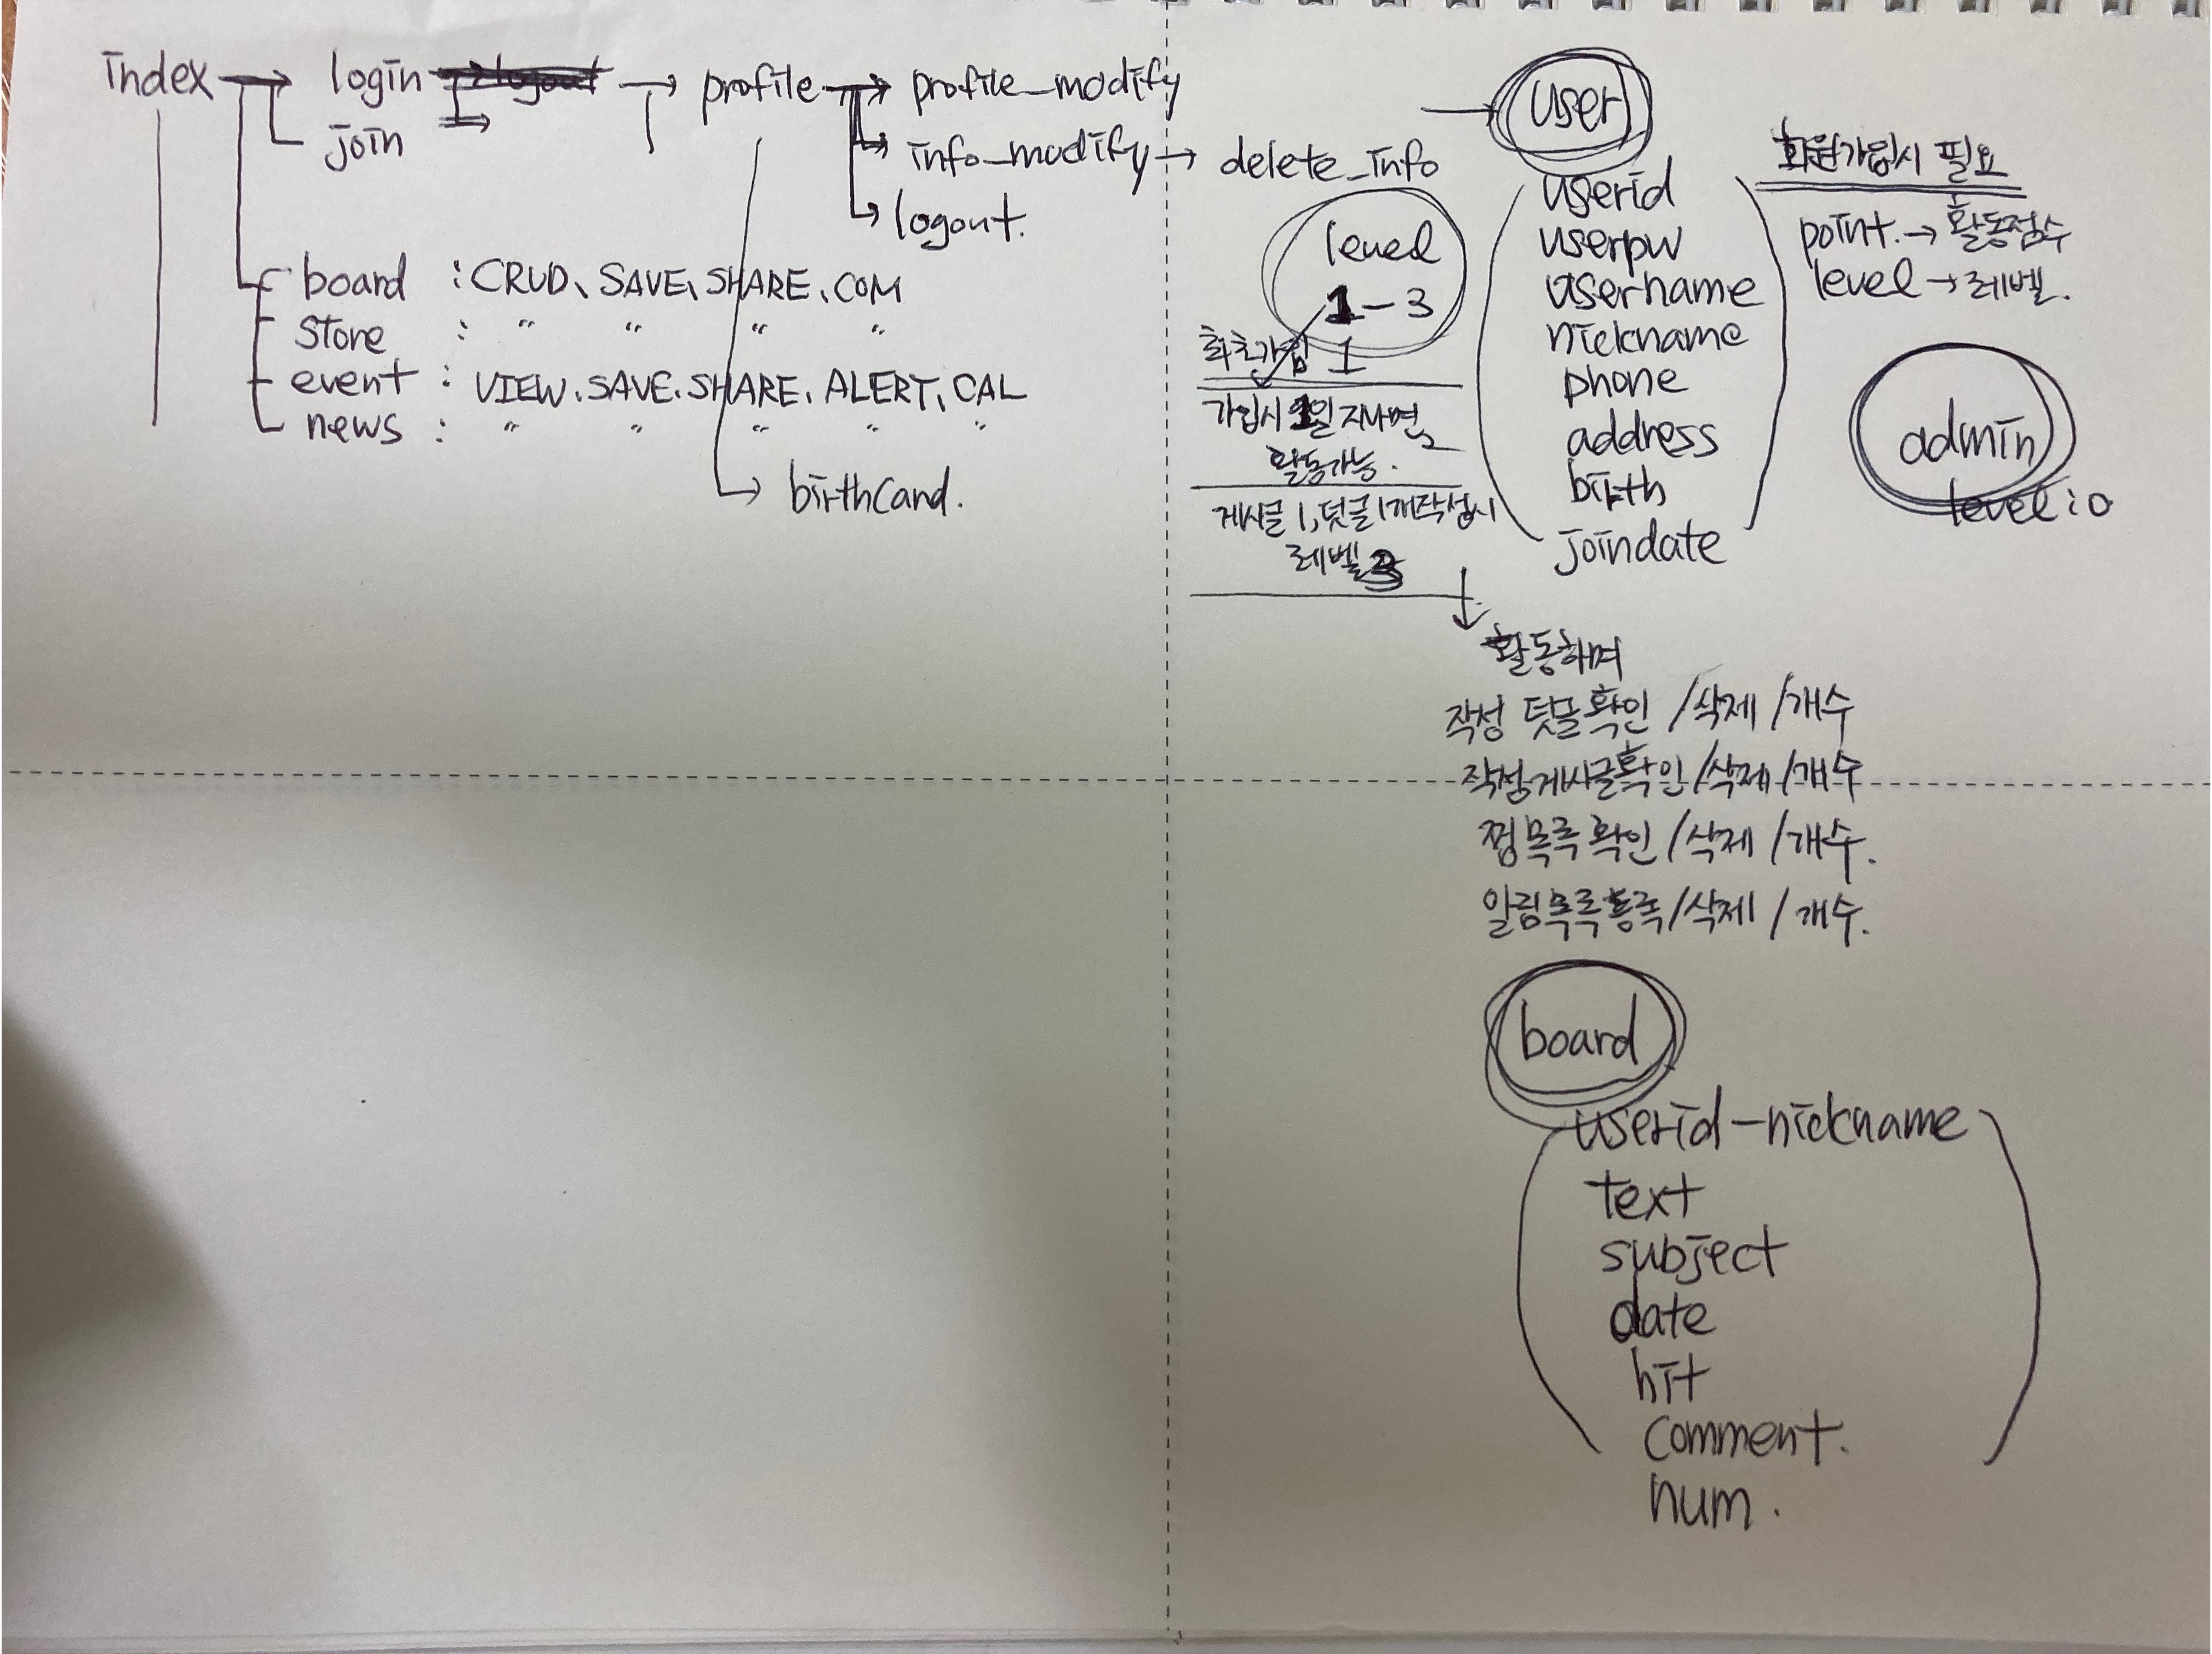 index → login → profile → profile_modify
join
info_modify → delete_info
logout.
board : CRUD, SAVE, SHARE, COM
store : " " " "
event : VIEW, SAVE, SHARE, ALERT, CAL
news : " " " " "
→ birthCand.
→ user
userid
userpw
username
nickname
phone
address
birth
joindate
회원가입시 필요
point. → 활동점수
level → 레벨.
admin
level : 0
level
1 - 3
최초가입 1
가입시 1일 지나면 2
활동가능.
게시글 1, 덧글 1개작성시
레벨 3
활동하며
작성 덧글확인 / 삭제 / 개수
작성게시글확인 / 삭제 / 개수
찜목록 확인 / 삭제 / 개수.
알림목록등록 / 삭제 / 개수.
board
userid - nickname
text
subject
date
hit
comment.
num.